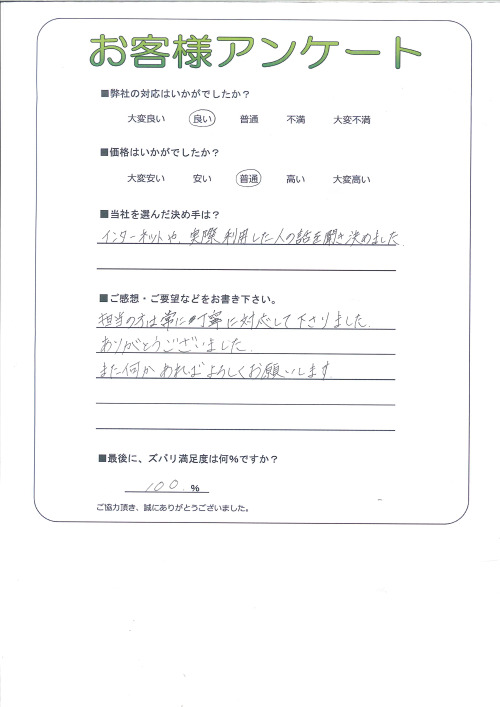 お客様アンケート
■弊社の対応はいかがでしたか？
大変良い 良い 普通 不満 大変不満
■価格はいかがでしたか？
大変安い 安い 普通 高い 大変高い
■当社を選んだ決め手は？
インターネットや、実際利用した人の話を聞き決めました。
■ご感想・ご要望などをお書き下さい。
担当の方は常に丁寧に対応して下さりました。
ありがとうございました。
また何かあればよろしくお願いします
■最後に、ズバリ満足度は何%ですか？
100 %
ご協力頂き、誠にありがとうございました。